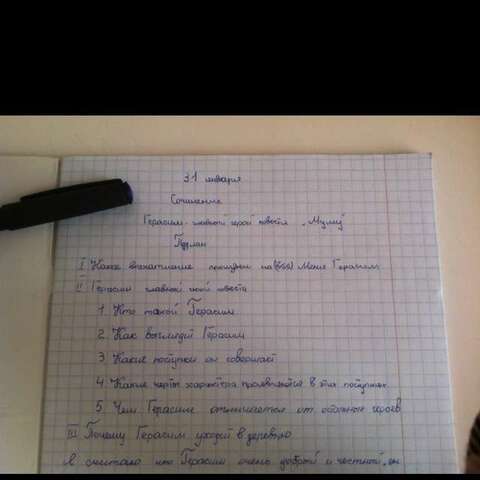 31 января
Сочинение
Герасим - главный герой повести „Муму"
План
I Какое впечатление на(вѣл) Меня Герасим
II Герасим главный герой повести
1. Кто такой Герасим
2. Как выглядит Герасим
3 Какие поступки он совершает
4. Какие черты характера проявляются в эти поступках
5. Чем Герасим отличается от остальных героев
III Почему Герасим уходит в деревню
Я считаю что Герасим очень добрый и честный, он